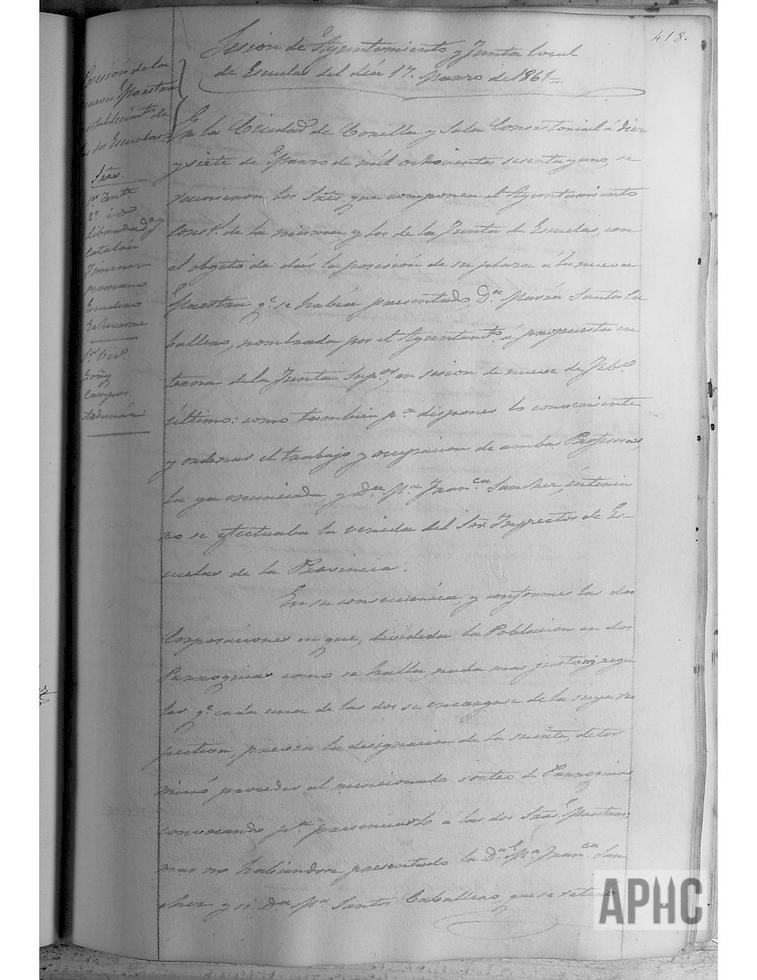 418.
Sesion de Ayuntamiento y Junta local
de Escuelas del dia 17. Marzo de 1861=
Posesión de la
nueva Maestra
establecimto. de
las dos Escuelas.
Sres.
1r. Tente.
2º. id
Catalán
Jimenez
Romano
Escudero
Goñy
Campos
En la Ciudad de Corella y Sala Consistorial á diez
y siete de Marzo de mil ochocientos sesenta y uno, se
reunieron los Sres. que componen el Ayuntamiento
Constl. de la misma y los de la Junta de Escuelas, con
el objeto de dar la posesión de su plaza á la nueva
Maestra qe. se había presentado Da. María Santos Ca-
ballero, nombrada por el Ayuntamto. á propuesta en
terna de la Junta Supor. en sesion de nueve de Febo.
último: como también pa. disponer lo conveniente
y ordenar el trabajo y ocupacion de ambas Profesoras,
la ya enunciada y Da. Ma. Franca. Sanchez, ínterin
no se efectuaba la venida del Sor. Inspector de Es-
cuelas de la Provincia.
En su consecuencia, y conformes las dos
Corporaciones en que, dividida la Poblacion en dos
Parroquias como se halla, nada mas justo y regu
lar qe. cada una de las dos se encargase de la suya res
pectiva, previa la designacion de la suerte, deter
minó proceder al mencionado sorteo de Parroquias
convocando pa. presenciarlo á las dos Sras. Maestras;
mas no habiendose presentado la Da. Ma. Franca. San
chez y si Da. Ma. Santos Caballero, que se
APHC